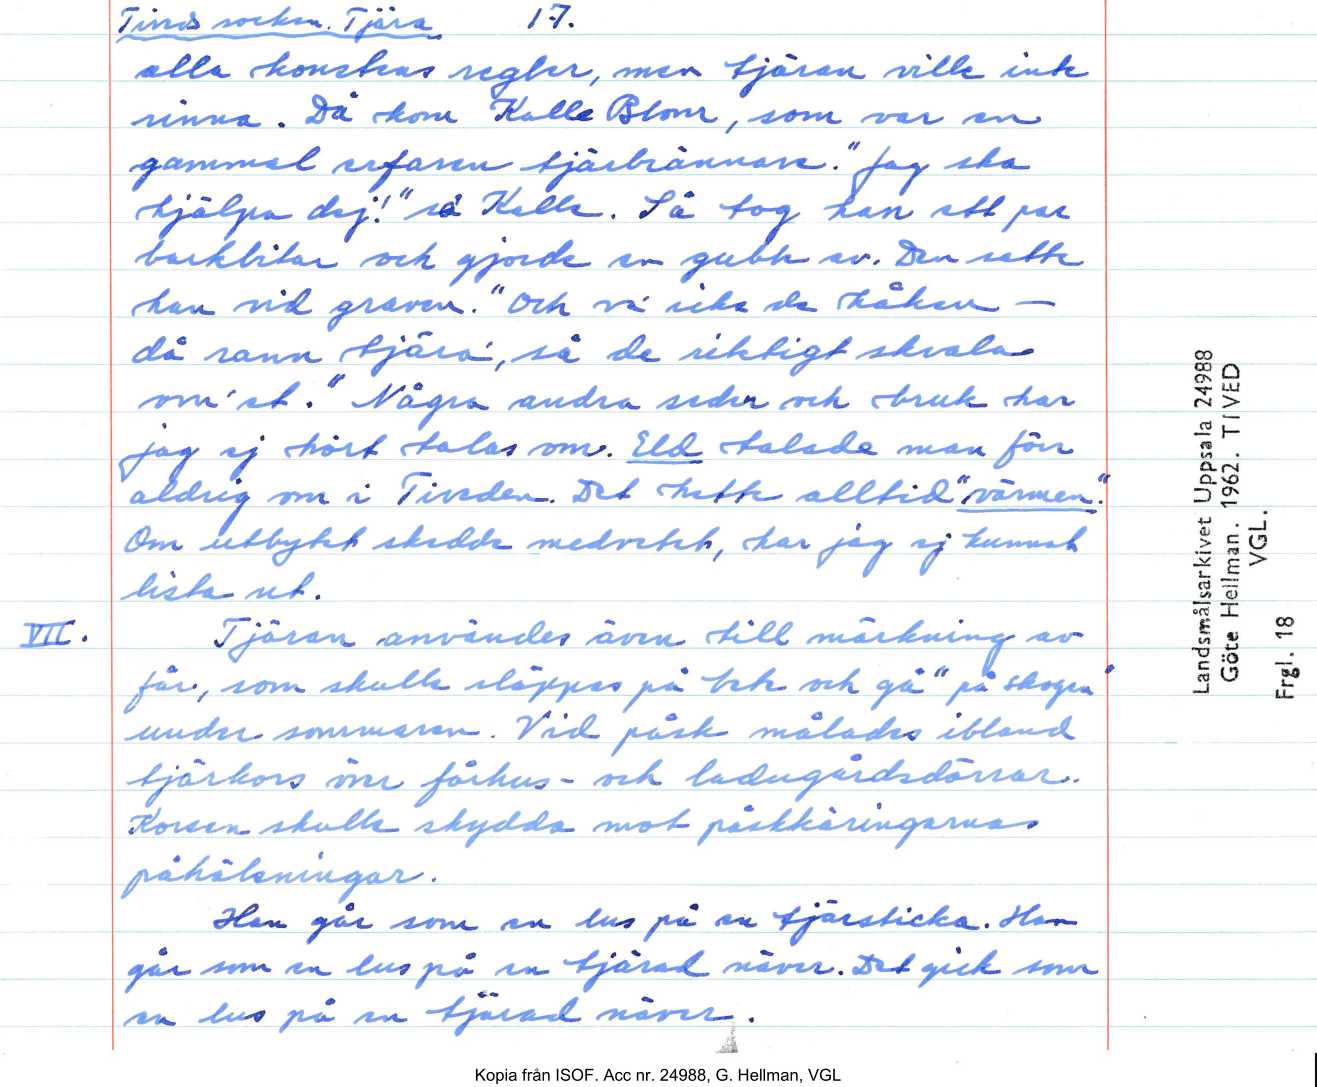 Tiveds socken. Tjära 17.
alla konstens regler, men tjäran ville inte
rinna. Då kom Kalle Blom, som var en
gammal erfaren tjärbrännare. "Jag ska
hjälpa dej!" sa Kalle. Så tog han ett par
barkbitar och gjorde en gubbe av. Den satte
han vid graven. "Och va' de
då rann tjära', så de riktigt skvala
om'et." Några andra seder och bruk har
jag ej hört talas om. Eld talade man förr
aldrig om i Tiveden. Det hette alltid "värmen".
Om utbytet skedde medvetet, har jag ej kunnat
lista ut.
VII. Tjäran användes även till märkning av
får, som skulle släppas på bete och gå "på skogen"
under sommaren. Vid påsk målades ibland
tjärkors över fårhus- och ladugårdsdörrar.
Korsen skulle skydda mot påskkäringarnas
påhälsningar.
Han går som en lus på en tjärsticka. Han
går som en lus på en tjärad näver. Det gick som
en lus på en tjärad näver.
Landsmålsarkivet Uppsala 24988
Göte Hellman. 1962. TIVED
VGL.
Frgl. 18
Kopia från ISOF. Acc nr. 24988, G. Hellman, VGL